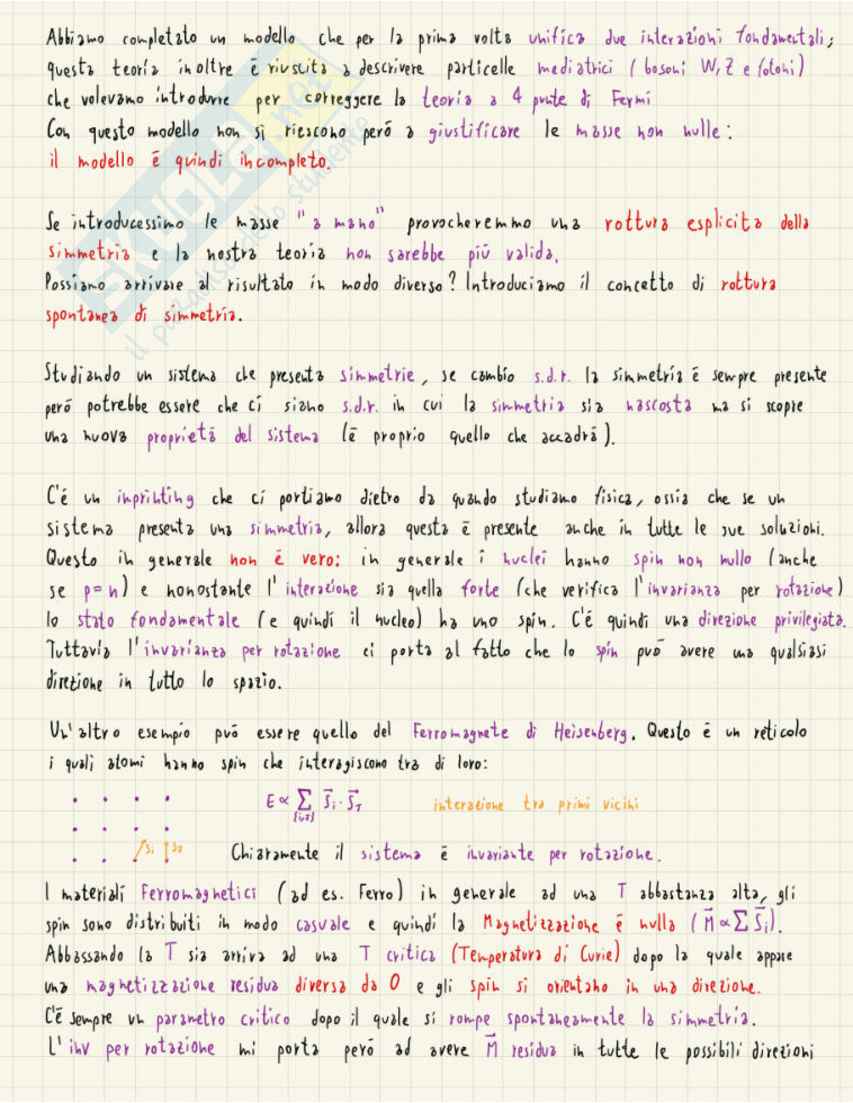 Abbiamo completato un modello che per la prima volta unifica due interazioni fondamentali;
questa teoria inoltre é riuscita a descrivere particelle mediatrici (bosoni W, Z e fotoni)
che volevamo introdurre per correggere la teoria a 4 punte di Fermi
Con questo modello non si riescono peró a giustificare le masse non nulle:
il modello é quindi incompleto.
Se introducessimo le masse "a mano" provocheremmo una rottura esplicita della
simmetria e la nostra teoria non sarebbe piú valida.
Possiamo arrivare al risultato in modo diverso? Introduciamo il concetto di rottura
spontanea di simmetria.
Studiando un sistema che presenta simmetrie, se cambio s.d.r. la simmetria é sempre presente
peró potrebbe essere che ci siano s.d.r. in cui la simmetria sia nascosta ma si scopre
una nuova proprietá del sistema (é proprio quello che accadrá).
C'é un inprinting che ci portiamo dietro da quando studiamo fisica, ossia che se un
sistema presenta una simmetria, allora questa é presente anche in tutte le sue soluzioni.
Questo in generale non é vero: in generale i nuclei hanno spin non nullo (anche
se p=n) e nonostante l'interazione sia quella forte (che verifica l'invarianza per rotazione)
lo stato fondamentale (e quindi il nucleo) ha uno spin. C'é quindi una direzione privilegiata.
Tuttavia l'invarianza per rotazione ci porta al fatto che lo spin puó avere una qualsiasi
direzione in tutto lo spazio.
Un'altro esempio puó essere quello del Ferromagnete di Heisenberg. Questo é un reticolo
i quali atomi hanno spin che interagiscono tra di loro:
E ∝ Σ S⃗i · S⃗J interazione tra primi vicini
(i,J)
Si SJ Chiaramente il sistema é invariante per rotazione.
I materiali Ferromagnetici (ad es. Ferro) in generale ad una T abbastanza alta, gli
spin sono distribuiti in modo casuale e quindi la Magnetizzazione é nulla (M⃗ ∝ Σ S⃗i).
Abbassando la T sia arriva ad una T critica (Temperatura di Curie) dopo la quale appare
una magnetizzazione residua diversa da 0 e gli spin si orientano in una direzione.
C'é sempre un parametro critico dopo il quale si rompe spontaneamente la simmetria.
L'inv per rotazione mi porta peró ad avere M⃗ residua in tutte le possibili direzioni
SKUOLA.net
il paradiso dello studente